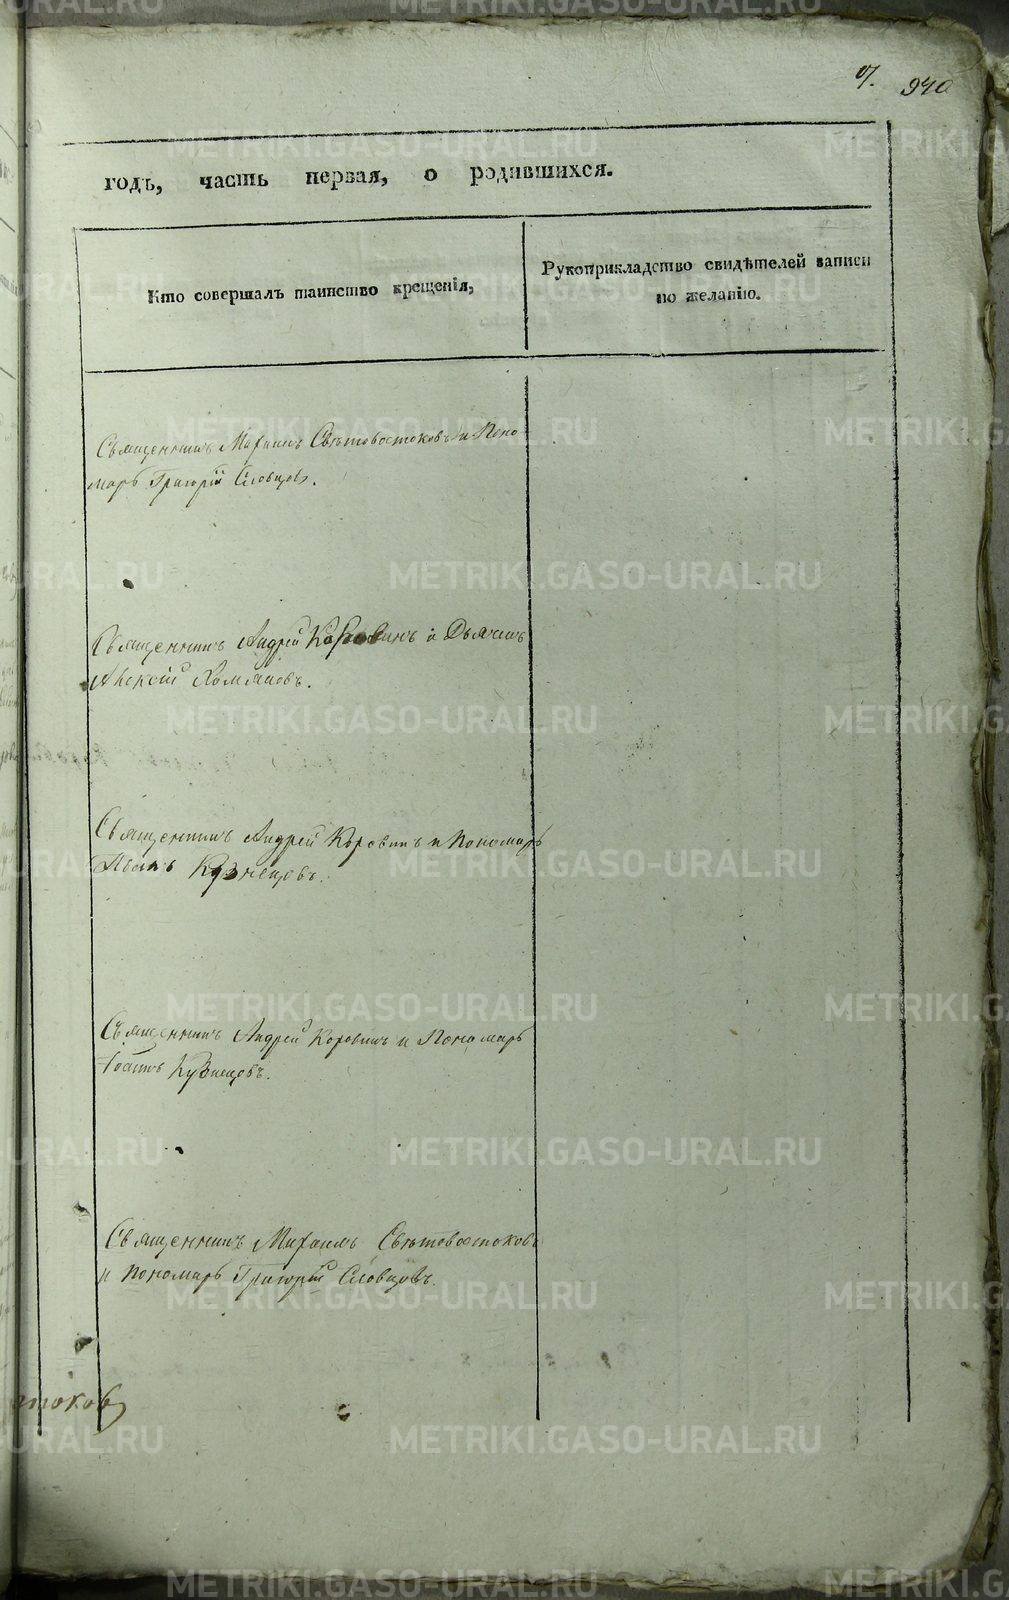 7. 940
годъ, часть первая, о родившихся.
Кто совершалъ таинство крещенія,
Рукоприкладство свидѣтелей записи
по желанію.
Священникъ Михаилъ Свѣтовостоковъ и Поно-
марь Григорій Словцовъ.
Священникъ Андрей Коровинъ и Дьячекъ
Алексій Хомяковъ.
Священникъ Андрей Коровинъ и Пономарь
Иванъ Кузнецовъ.
Священникъ Андрей Коровинъ и Пономарь
Іоаннъ Кузнецовъ.
Священникъ Михаилъ Свѣтовостоковъ
и Пономарь Григорій Словцовъ.
стоковъ
METRIKI.GASO-URAL.RU